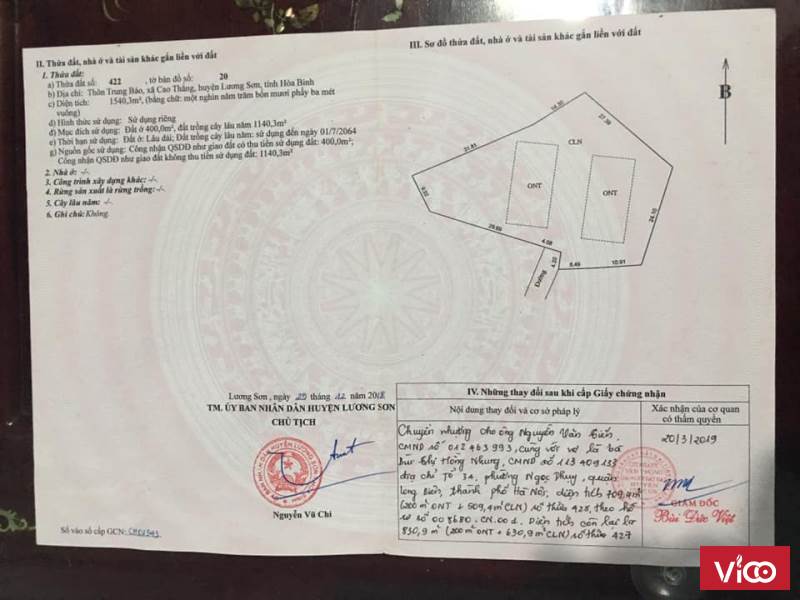 II. Thửa đất, nhà ở và tài sản khác gắn liền với đất
1. Thửa đất:
a) Thửa đất số: 422, tờ bản đồ số: 20
b) Địa chỉ: Thôn Trung Báo, xã Cao Thắng, huyện Lương Sơn, tỉnh Hòa Bình
c) Diện tích: 1540,3m², (bằng chữ: một nghìn năm trăm bốn mươi phẩy ba mét
vuông)
d) Hình thức sử dụng: Sử dụng riêng
đ) Mục đích sử dụng: Đất ở 400,0m², đất trồng cây lâu năm 1140,3m²
e) Thời hạn sử dụng: Đất ở: Lâu dài; Đất trồng cây lâu năm: sử dụng đến ngày 01/7/2064
g) Nguồn gốc sử dụng: Công nhận QSDĐ như giao đất có thu tiền sử dụng đất: 400,0m²;
Công nhận QSDĐ như giao đất không thu tiền sử dụng đất: 1140,3m²
2. Nhà ở: -/-
3. Công trình xây dựng khác: -/-
4. Rừng sản xuất là rừng trồng: -/-
5. Cây lâu năm: -/-
6. Ghi chú: Không.
Lương Sơn, ngày 29 tháng 12 năm 2018
TM. ỦY BAN NHÂN DÂN HUYỆN LƯƠNG SƠN
CHỦ TỊCH
Nguyễn Vũ Chi
Số vào sổ cấp GCN:
III. Sơ đồ thửa đất, nhà ở và tài sản khác gắn liền với đất
B
14.30
27.09
21.81
CLN
ONT
ONT
9.32
24.10
29.69
4.08
4.20
8.46
10.91
Đường
IV. Những thay đổi sau khi cấp Giấy chứng nhận
Nội dung thay đổi và cơ sở pháp lý
Xác nhận của cơ quan
có thẩm quyền
Chuyển nhượng cho ông Nguyễn Văn
CMND số 012463993, cùng với vợ là bà
Bùi Thị Hồng Nhung, CMND số 113409133
địa chỉ Tổ 34, phường Ngọc Thụy, quận
Long Biên, thành phố Hà Nội, diện tích 709,4m²
(200m² ONT + 509,4m² CLN) số thửa 428, theo hồ
sơ số 008680.CN.001. Diện tích còn lại là
830,9m² (200m² ONT + 630,9m² CLN) số thửa 427
20/3/2019
GIÁM ĐỐC
Bùi Đức Việt
ViCO